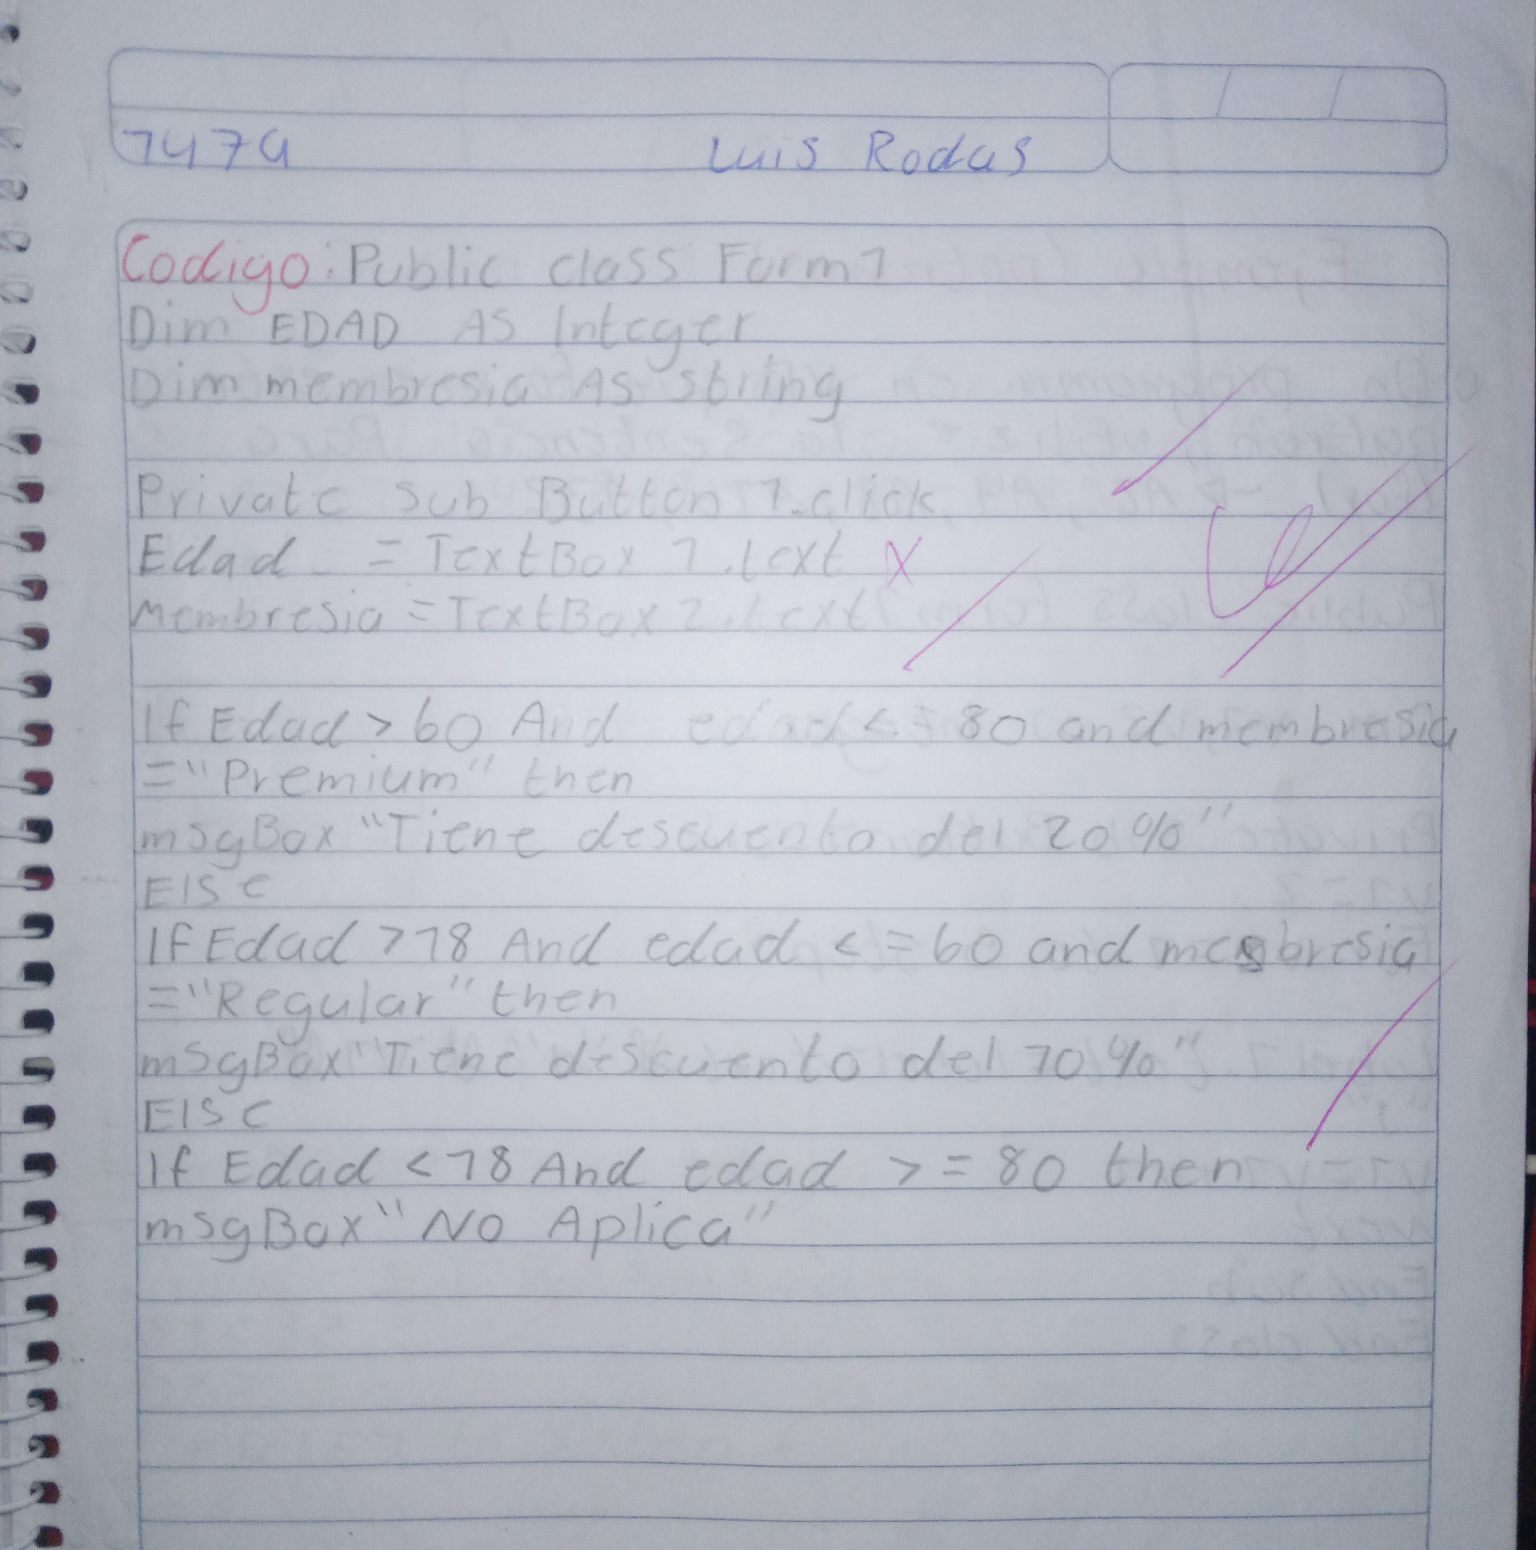 1479 Luis Rodas
Codigo: Public class Form1
Dim EDAD AS Integer
Dim membresia AS string
Private sub Button 1.click
Edad = TextBox 1.text X
Membresia = TextBox 2.text
If Edad > 60 And edad < = 80 and membresia
="Premium" then
msgBox "Tiene descuento del 20%"
Else
If Edad > 18 And edad < = 60 and membresia
="Regular" then
msgBox "Tiene descuento del 10%"
Else
If Edad < 18 And edad > = 80 then
msgBox "No Aplica"